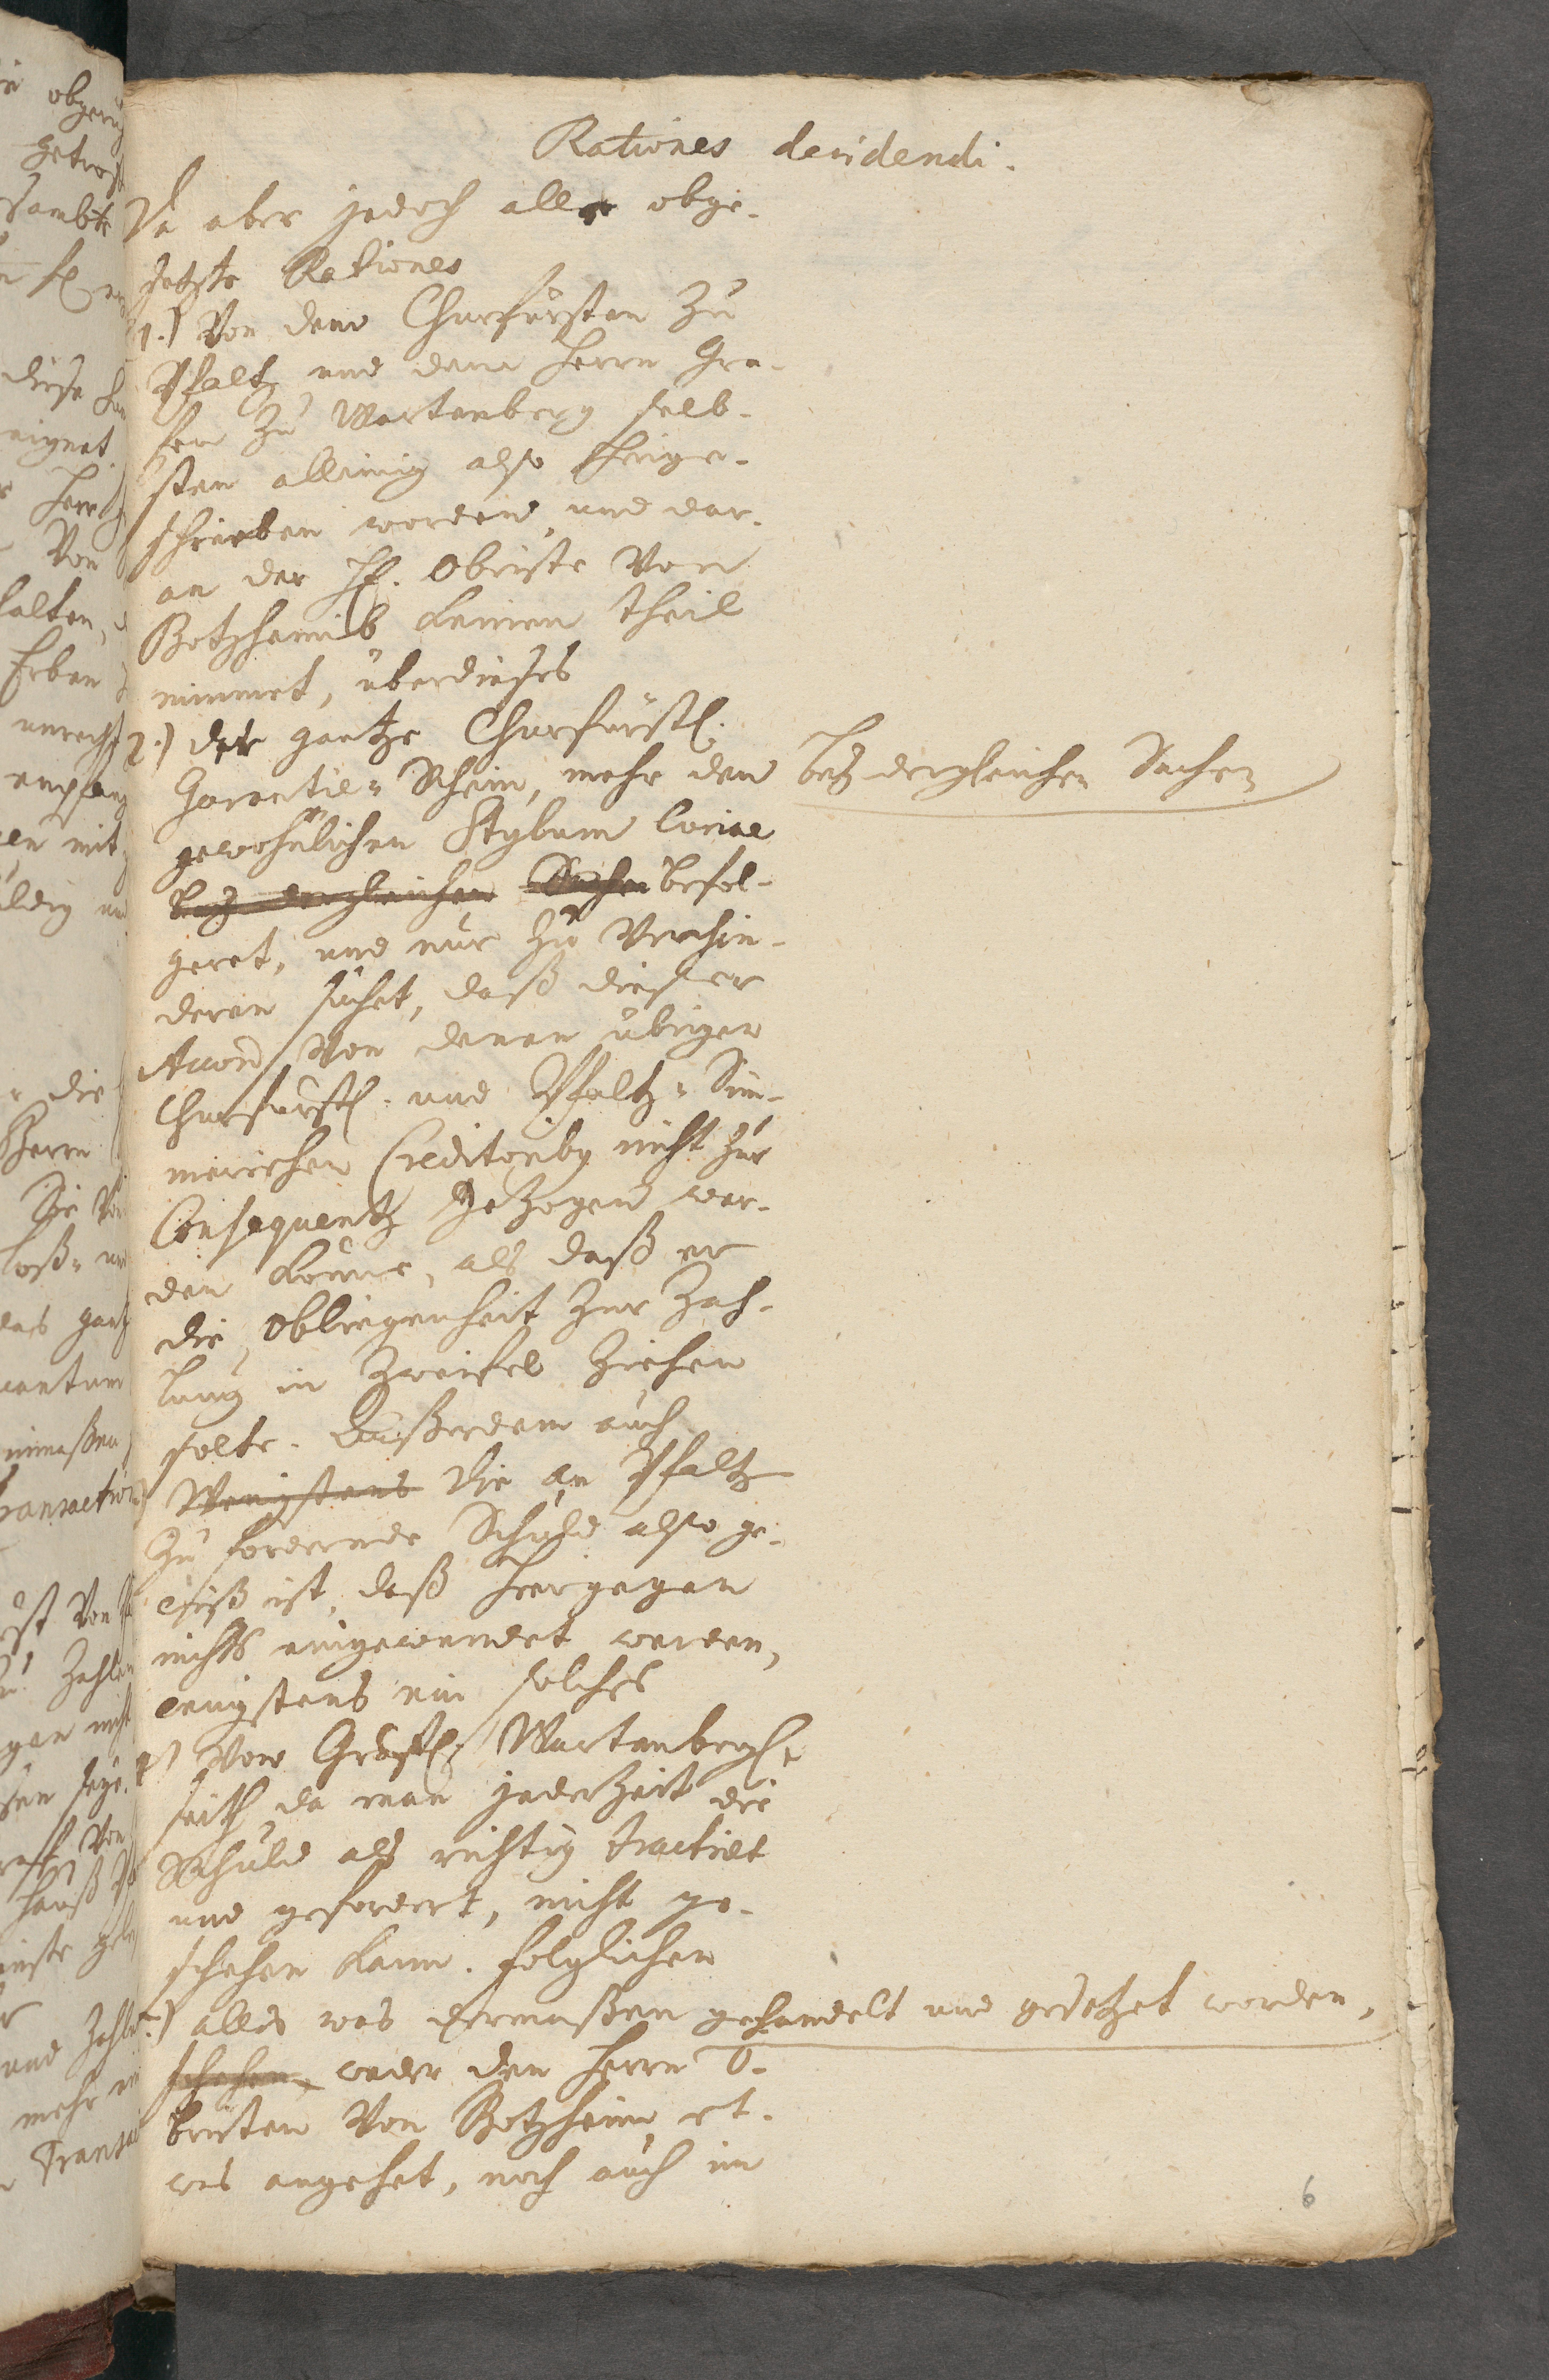 Rationes decidendi.
Da aber jedoch alle obge-
setzte Rationes
1.) Von dem Churfürsten Zu
Pfaltz und dem Herrn Gra-
fen Zu Wartenberg selb-
sten alleinig also
schrieben worden, und dar-
an der H. Obriste Von
Botzheimb keinen theil
nimmet, überdieses
2.) der gantze Churfürstl.
Garantie-Schein, mehr den bey dergleichen Sachen
gewohnlichen Stylum Curiae
bey dergleichen Sachen befol-
geret, und nur Zu Verhin-
deren suchet, daß dießer
Accord Von denen übrigen
Churfürstl. und Pfaltz-Sim-
merischen Creditoribus nicht Zur
Consequentz geZogen wer-
den könne, als daß er
die Obliegenheit Zur Zah-
lung in Zweifel Ziehen
solte. Außerdem auch
Wenigstens die an Pfaltz
Zu fordernde Schuld also ge-
wiß ist, daß hiergegen
nichts eingewendet werden,
wenigstens ein solches
4.) Von Gräfl. Wartenbergl.
seith, da man jederZeit die
Schuld als richtig tractiret
und gefordert, nicht ge-
schehen kann. folglichen
5.) alles was dermaßen gehandelt und gesetzet worden,
schehen, weder den Herrn O-
bristen Von Botzheim et-
was angehet, noch auch im
6